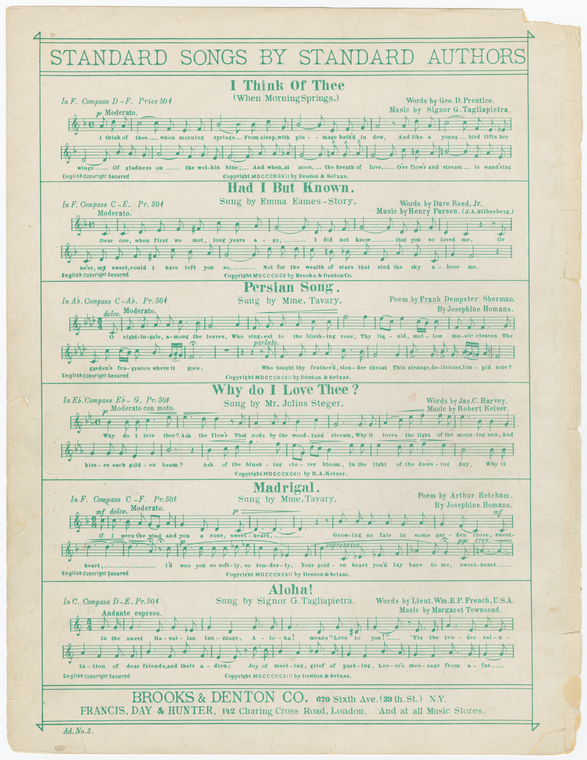 STANDARD SONGS BY STANDARD AUTHORS
I Think Of Thee
(When Morning Springs.)
In F. Compass D-F. Price 50¢
Words by Geo. D. Prentice.
Music by Signor G. Tagliapietra.
p Moderato.
I think of thee.... when morning springs... From sleep, with plu - mage bath'd in dew, And like a young... bird lifts her
wings...... Of gladness on ...... the welkin blue;... And when, at noon,... the breath of love,.... O'er flow'r and stream... is wand'ring
English Copyright Secured
Copyright MDCCCXCVII by Denton & Sefxas.
Had I But Known.
Sung by Emma Eames-Story.
In F. Compass C-E. Pr. 50¢
Words by Dave Reed, Jr.
Moderato.
Music by Henry Farsen. (J.A. Silberberg.)
Dear one, when first we met, long years a - go, I did not know ...... that you so loved me, Or
ne'er, my sweet, could I have left you so, Not for the wealth of stars that stud the sky a - bove me.
English Copyright Secured
Copyright MDCCCXCV by Brooks & Denton Co.
Persian Song.
Sung by Mme. Tavary.
In A♭. Compass C-A♭. Pr. 50¢
Poem by Frank Dempster Sherman.
By Josephine Homans.
dolce. Moderato.
O night-in-gale, a-mong the leaves, Who sing-est to the blush-ing rose, Thy liq - uid, mel - low mu - sic cleaves The
parlato.
garden's fra - grance where it goes. Who taught thy feather'd, slen-der throat This strange, de-licious, lim - pid note?
English Copyright Secured
Copyright MDCCCXCVII by Denton & Sefxas.
Why do I Love Thee?
Sung by Mr. Julius Steger.
In E♭. Compass E♭-G. Pr. 50¢
Words by Jas. C. Harvey.
Music by Robert Keiser.
p Moderato con moto.
Why do I love thee? Ask the flow'r That nods by the wood-land stream, Why it loves the light of the morn-ing sun, And
kiss - es each gold - en beam? Ask of the blush - ing clo - ver bloom, In the light of the dawn - ing day, Why it
Copyright MDCCCXCVII by R.A. Keiser.
Madrigal.
Sung by Mme. Tavary.
In F. Compass C-F. Pr. 50¢
Poem by Arthur Ketcham.
By Josephine Homans.
mf dolce. Moderato.
p
mf
If I were the wind and you a rose, sweet-heart, Grow-ing so fair in some gar - den close, sweet-
espressivo.
pp
heart, I'd woo you so soft-ly, so ten-der-ly, Your gold - en heart you'd lay bare to me, sweet-heart....
English Copyright Secured
Copyright MDCCCXCVII by Denton & Sefxas.
Aloha!
Sung by Signor G. Tagliapietra.
In C. Compass D-E. Pr. 50¢
Words by Lieut. Wm. E.P. French, U.S.A.
Music by Margaret Townsend.
Andante espress.
In the sweet Ha-wai-ian lan-guage, A - lo - ha! means "Love to you!"..... 'Tis the ten-der salu-
ta - tion of dear friends, and their a - dieu; Joy of meet-ing, grief of part-ing, Lov-er's mes-sage from a - far......
English Copyright Secured
Copyright MDCCCXCVII by Denton & Sefxas.
BROOKS & DENTON CO. 670 Sixth Ave. (39 th. St.) N.Y.
FRANCIS, DAY & HUNTER, 142 Charing Cross Road, London. And at all Music Stores.
Ad. No. 3.